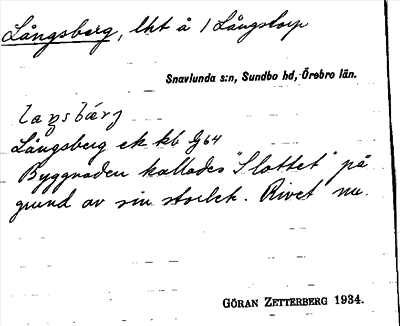 Långsberg, lht å 1 Långstorp
Snavlunda s:n, Sundbo hd, Örebro län.
laŋsbärj
Långsberg ek kb G64
Byggnaden kallades "Slottet" på
grund av sin storlek. Rivet nu.
GÖRAN ZETTERBERG 1934.